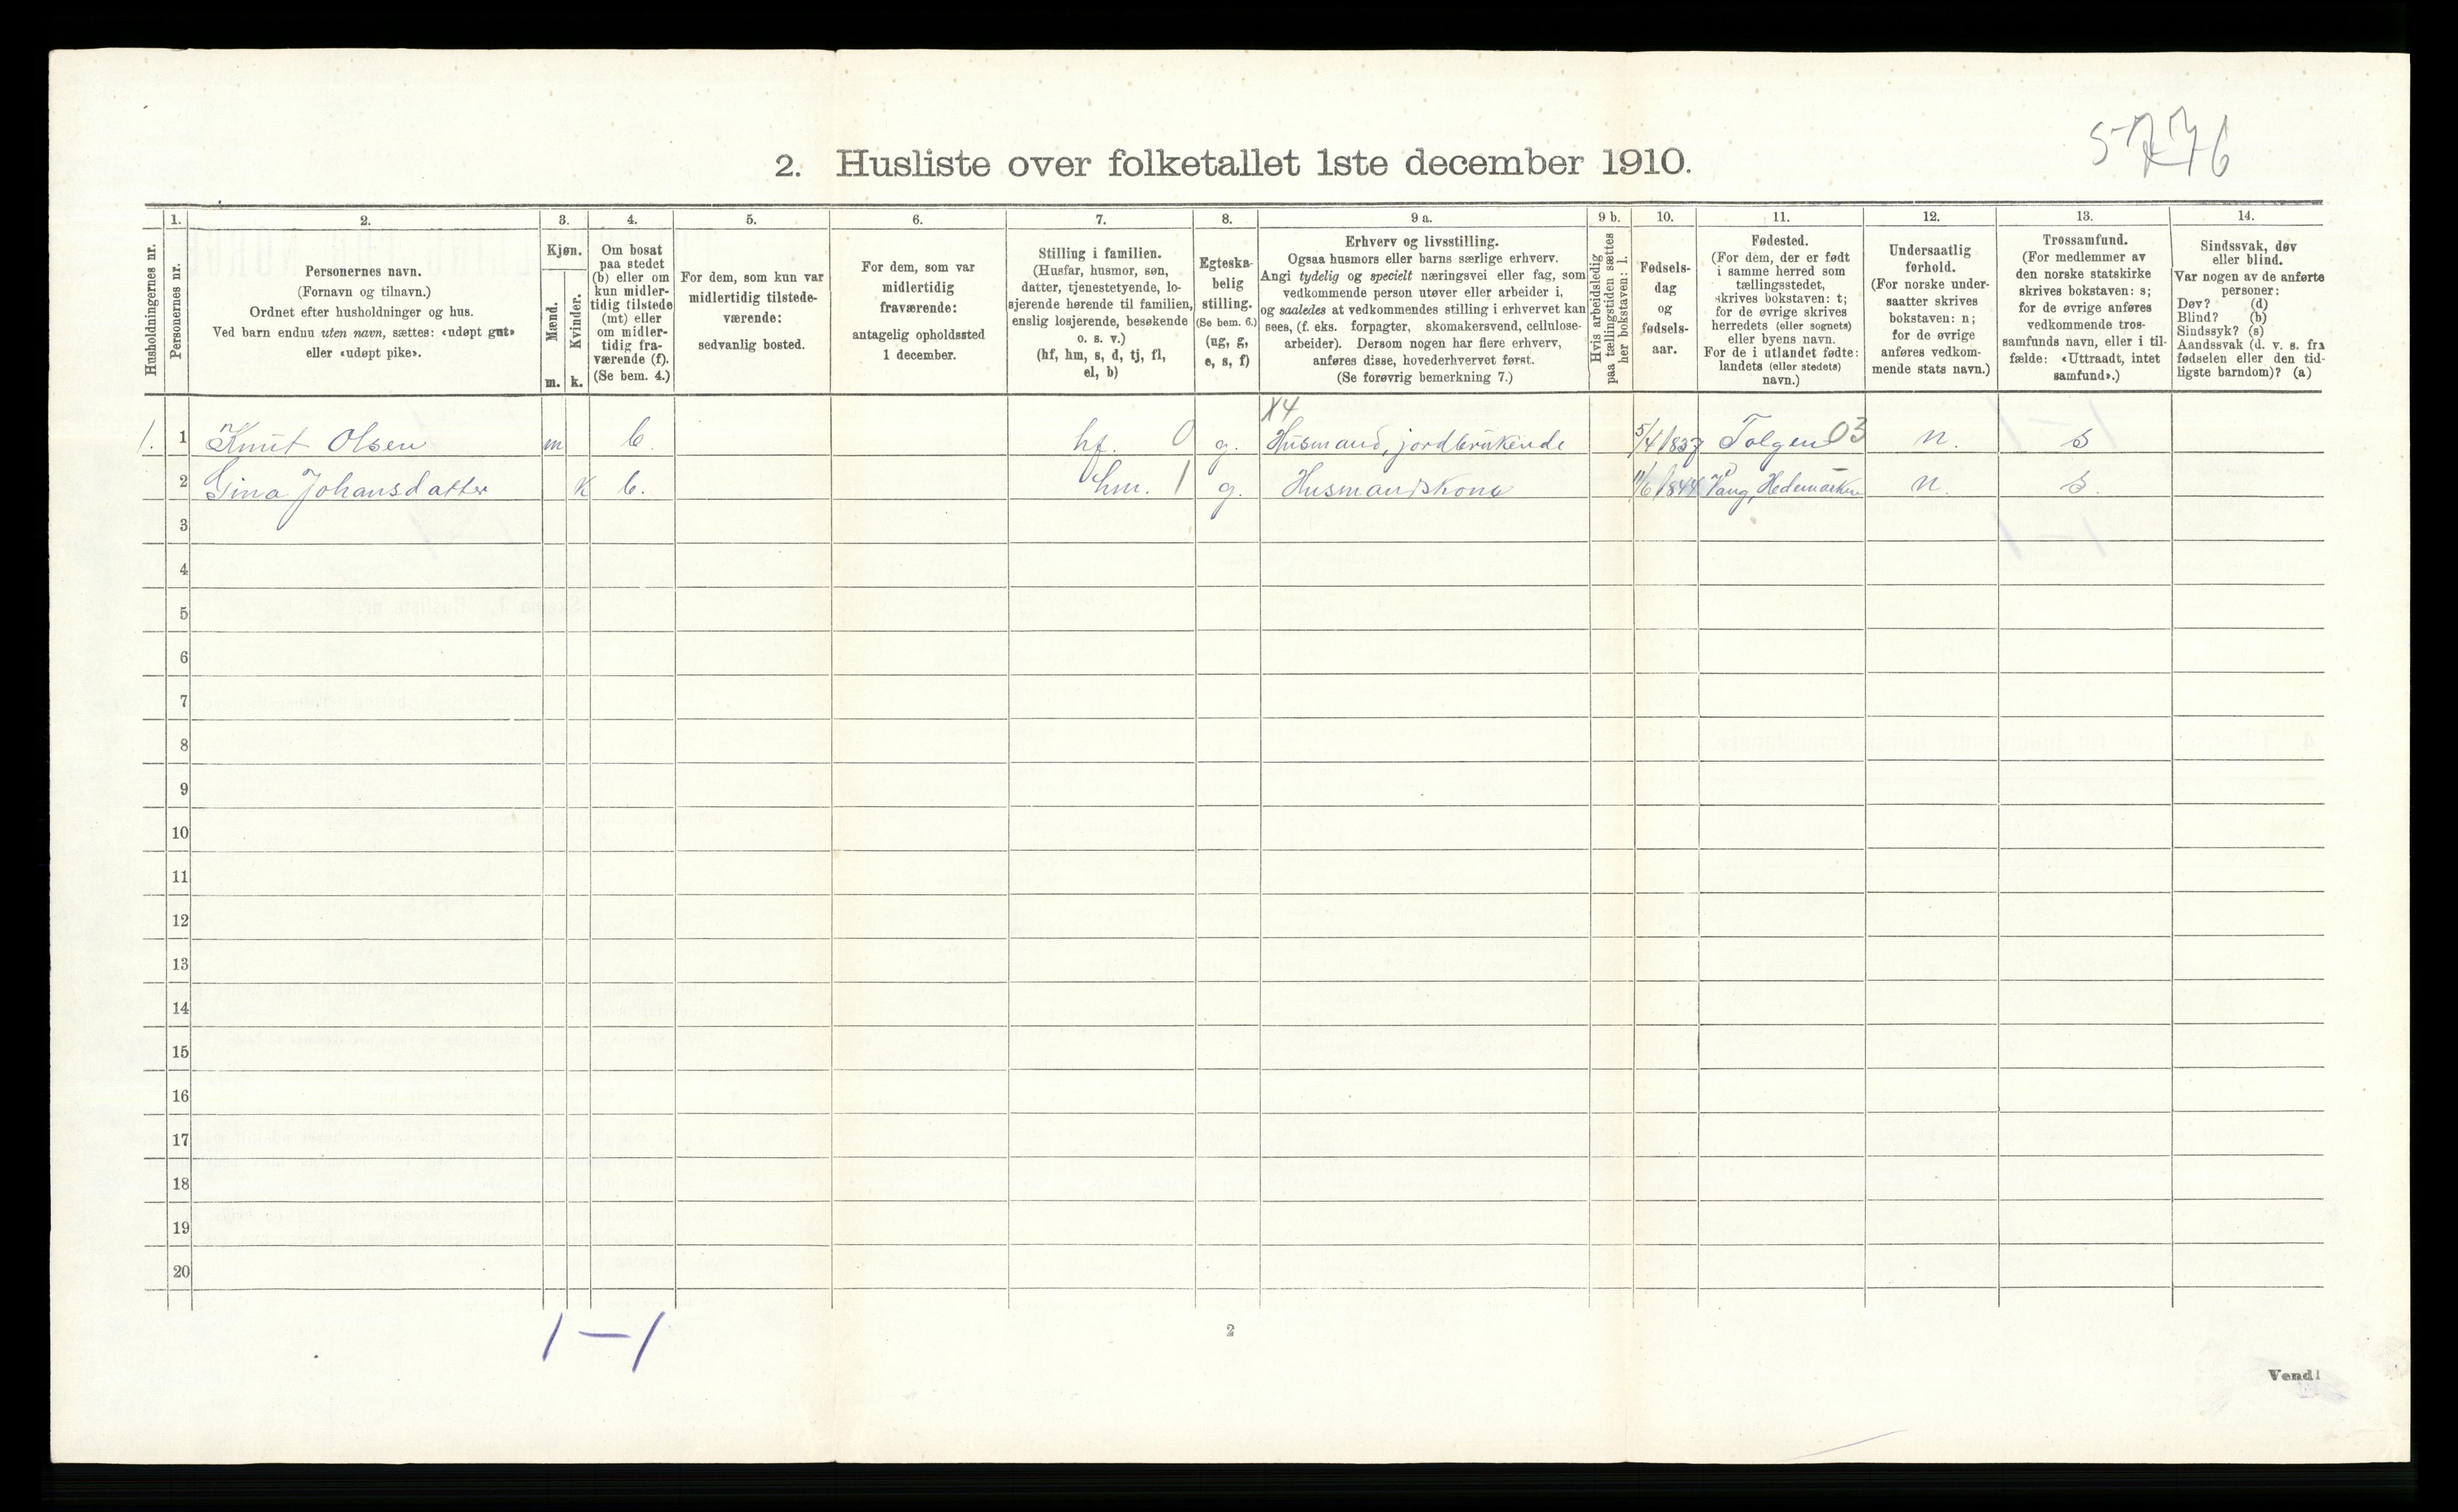 2. Husliste over folketallet 1ste december 1910.
Husholdningernes nr.
1.
Personernes nr.
2.
Personernes navn.
(Fornavn og tilnavn.)
Ordnet efter husholdninger og hus.
Ved barn endnu uten navn, sættes: «udøpt gut»
eller «udøpt pike».
3.
Kjøn.
Mænd.
Kvinder.
m. k.
4.
Om bosat
paa stedet
(b) eller om
kun midler-
tidig tilstede
(mt) eller
om midler-
tidig fra-
værende (f).
(Se bem. 4.)
5.
For dem, som kun var
midlertidig tilstede-
værende:
sedvanlig bosted.
6.
For dem, som var
midlertidig
fraværende:
antagelig opholdssted
1 december.
7.
Stilling i familien.
(Husfar, husmor, søn,
datter, tjenestetyende, lo-
sjerende hørende til familien,
enslig losjerende, besøkende
o. s. v.)
(hf, hm, s, d, tj, fl,
el, b)
8.
Egteska-
belig
stilling.
(Se bem. 6.)
(ug, g,
e, s, f)
9 a.
Erhverv og livsstilling.
Ogsaa husmors eller barns særlige erhverv.
Angi tydelig og specielt næringsvei eller fag, som
vedkommende person utøver eller arbeider i,
og saaledes at vedkommendes stilling i erhvervet kan
sees, (f. eks. forpagter, skomakersvend, cellulose-
arbeider). Dersom nogen har flere erhverv,
anføres disse, hovederhvervet først.
(Se forøvrig bemerkning 7.)
9 b.
Hvis arbeidsledig
paa tællingstiden sættes
her bokstaven: l.
10.
Fødsels-
dag
og
fødsels-
aar.
11.
Fødested.
(For dem, der er født
i samme herred som
tællingsstedet,
skrives bokstaven: t;
for de øvrige skrives
herredets (eller sognets)
eller byens navn.
For de i utlandet fødte:
landets (eller stedets)
navn.)
12.
Undersaatlig
forhold.
(For norske under-
saatter skrives
bokstaven: n;
for de øvrige
anføres vedkom-
mende stats navn.)
13.
Trossamfund.
(For medlemmer av
den norske statskirke
skrives bokstaven: s;
for de øvrige anføres
vedkommende tros-
samfunds navn, eller i til-
fælde: «Uttraadt, intet
samfund».)
14.
Sindssvak, døv
eller blind.
Var nogen av de anførte
personer:
Døv? (d)
Blind? (b)
Sindssyk? (s)
Aandssvak (d. v. s. fra
fødselen eller den tid-
ligste barndom)? (a)
X4
1. 1 Knut Olsen m b. hf. 0 g. Husmand, jordbrukende 5/4 1837 Tolgen 03 n. s
2 Gina Johansdatter k b. hm. 1 g. Husmandskone 11/6 1844 Vang, Hedemarken n. s.
3
4
5
6
7
8
9
10
11
12
13
14
15
16
17
18
19
20
1 — 1
2
Vend!